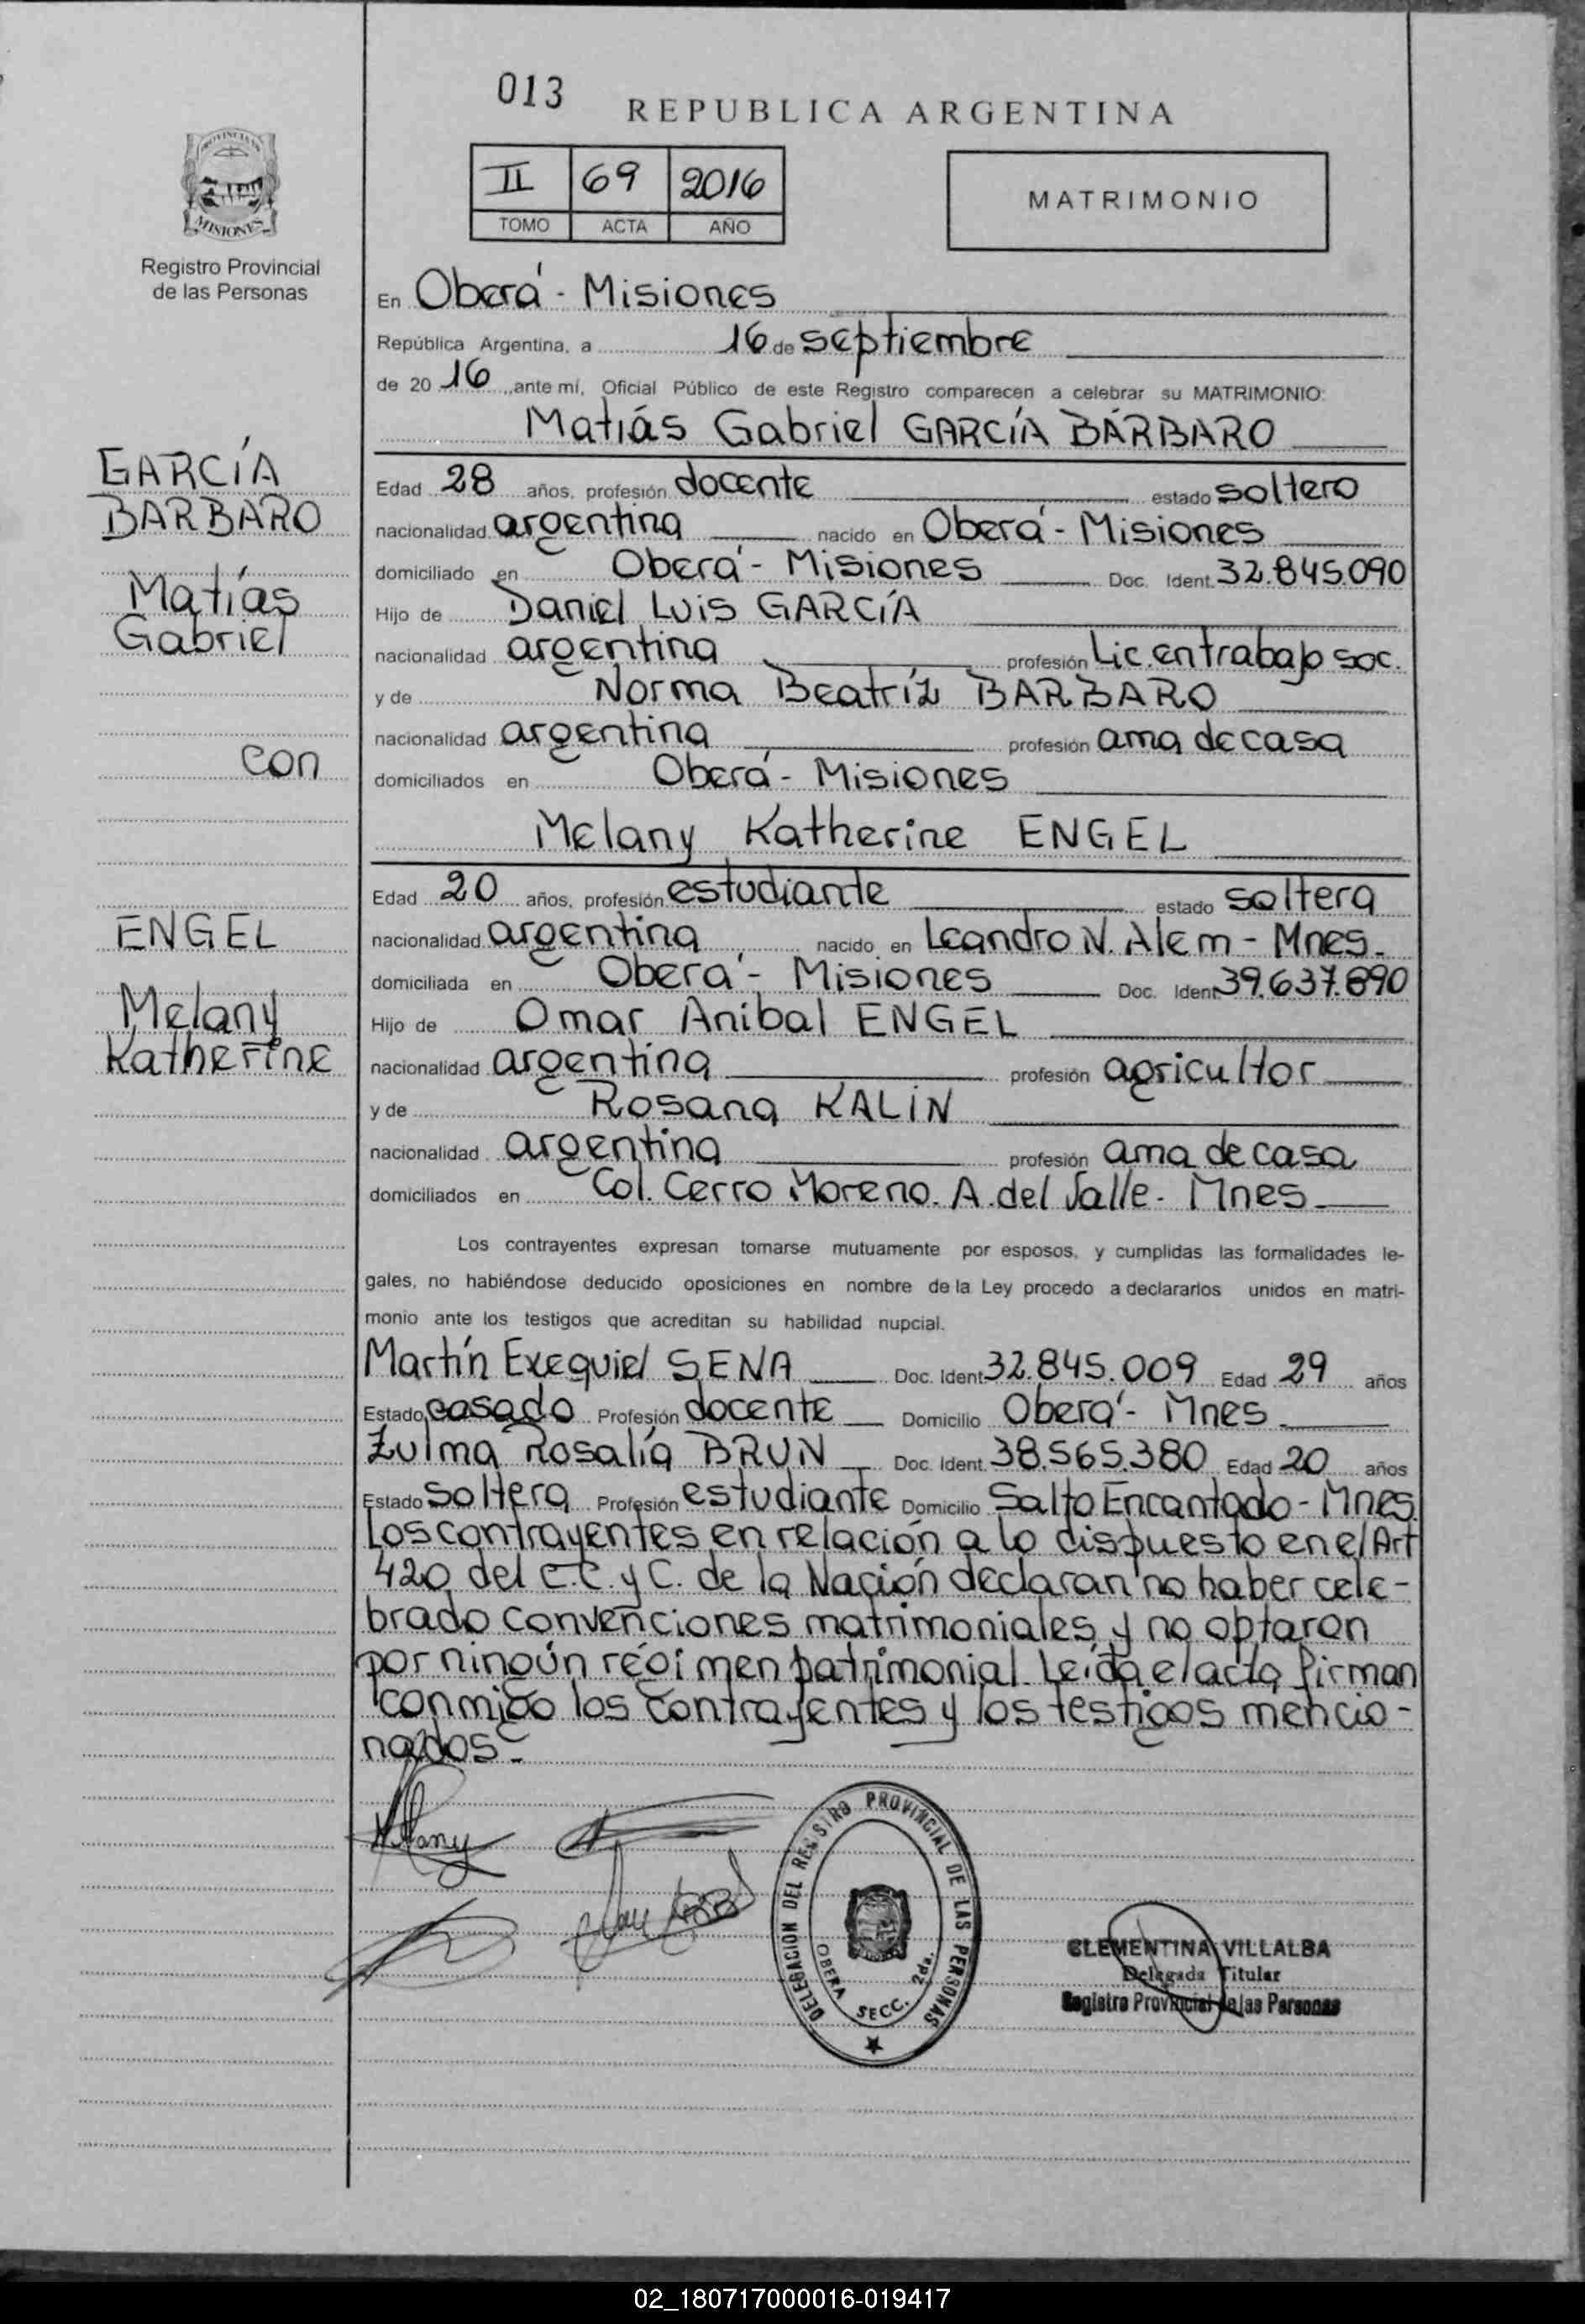 013
REPUBLICA ARGENTINA
PROVINCIA DE
MISIONES
Registro Provincial
de las Personas
II 69 2016
TOMO ACTA AÑO
MATRIMONIO
En Oberá - Misiones
República Argentina, a 16 de septiembre
de 20 16, ante mí, Oficial Público de este Registro comparecen a celebrar su MATRIMONIO:
Matías Gabriel GARCÍA BÁRBARO
GARCÍA
BARBARO
Matías
Gabriel
con
ENGEL
Melany
Katherine
Edad 28 años, profesión docente estado soltero
nacionalidad argentina nacido en Oberá - Misiones
domiciliado en Oberá - Misiones Doc. Ident. 32.845.090
Hijo de Daniel Luis GARCÍA
nacionalidad argentina profesión Lic. en trabajo soc.
y de Norma Beatríz BARBARO
nacionalidad argentina profesión ama de casa
domiciliados en Oberá - Misiones
Melany Katherine ENGEL
Edad 20 años, profesión estudiante estado soltera
nacionalidad argentina nacido en Leandro N. Alem - Mnes.
domiciliada en Oberá - Misiones Doc. Ident. 39.637.890
Hijo de Omar Anibal ENGEL
nacionalidad argentina profesión agricultor
y de Rosana KALIN
nacionalidad argentina profesión ama de casa
domiciliados en Col. Cerro Moreno. A. del Valle - Mnes
Los contrayentes expresan tomarse mutuamente por esposos, y cumplidas las formalidades le-
gales, no habiéndose deducido oposiciones en nombre de la Ley procedo a declararlos unidos en matri-
monio ante los testigos que acreditan su habilidad nupcial.
Martín Exequiel SENA Doc. Ident. 32.845.009 Edad 29 años
Estado casado Profesión docente Domicilio Oberá - Mnes
Zulma Rosalía BRUN Doc. Ident. 38.565.380 Edad 20 años
Estado soltera Profesión estudiante Domicilio Salto Encantado - Mnes
Los contrayentes en relación a lo dispuesto en el Art
420 del C.C. y C. de la Nación declaran no haber cele-
brado convenciones matrimoniales y no optaron
por ningún régimen patrimonial. Leída el acta firman
conmigo los contrayentes y los testigos mencio-
nados.
Melany
DELEGACION DEL REGISTRO PROVINCIAL DE LAS PERSONAS
OBERA SECC. 2da.
CLEMENTINA VILLALBA
Delegada Titular
Registro Provincial de las Personas
02_180717000016-019417